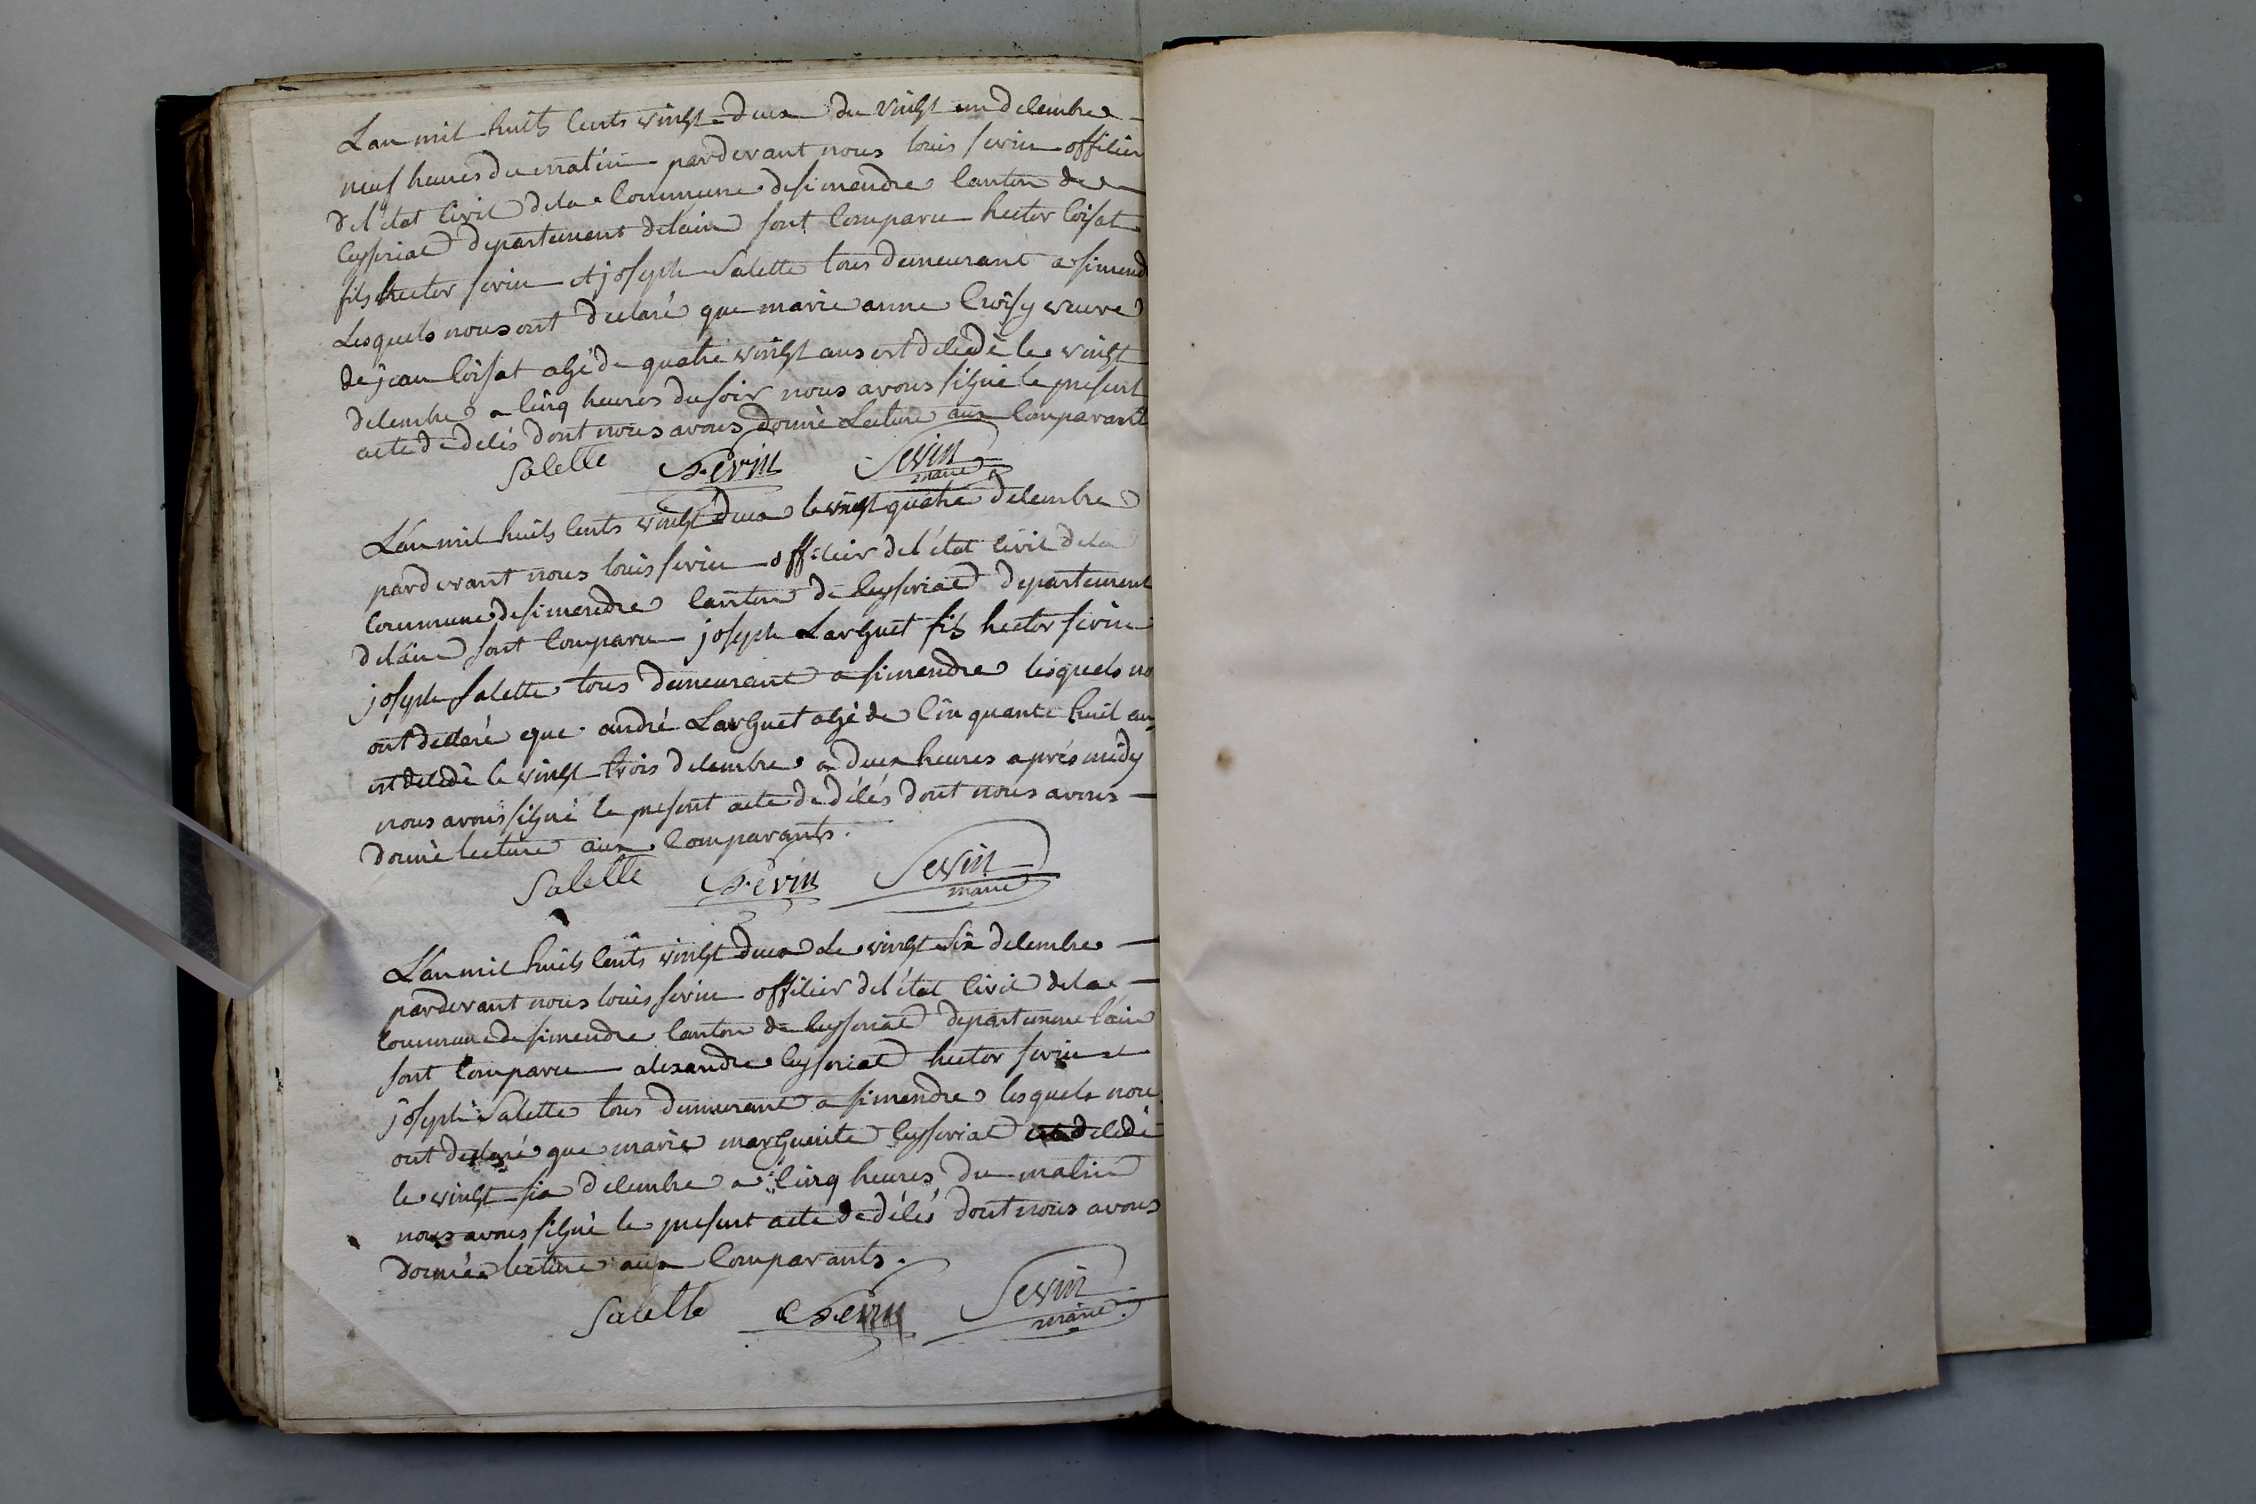 Lan mil huits cents vingt deux du vingt un decembre
neuf heures du matin pardevant nous louis sevin officier
del etat civil dela commune desimandre canton de
ceyseriat departement delain sont comparu hector loisat
fils hector sevin et joseph Salette tous demeurant a simand
Lesquels nous ont declaré que marie anne croisy veuve
de jean loisat agé de quatre vingt ans est decedé le vingt
decembre a cinq heures du soir nous avons signé le present
acte de decés dont nous avons donné Lecture aux comparant
Salette Sevin Sevin
maire
L'an mil huits cents vingt deux le vingt quatre decembre
pardevant nous louis sevin officier del'état civil dela
commune desimandre canton de ceyseriat departement
delain sont comparu joseph Larguet fils hector sevin
joseph Salette tous demeurant a simandre lesquels no
ont declaré que andré Larguet agé de cinquante huit an
est decedé le vingt trois decembre a deux heures aprés midy
nous avons signé le present acte de décés dont nous avons
donné lecture aux comparants.
Salette Sevin Sevin
maire
L'an mil huits cents vingt deux Le vingt six decembre
pardevant nous louis sevin officier del'état civil dela
commune de simandre canton de ceyseriat departement lain
sont comparu alexandre ceyseriat hector sevin et
joseph Salette tous demeurant a simandre lesquels nou
ont declaré que marie marguerite ceyseriat est decedé
le vingt six decembre a cinq heures du matin
nous avons signé le present acte de décés dont nous avons
donnée lecture aux comparants.
Salette Sevin Sevin
maire.